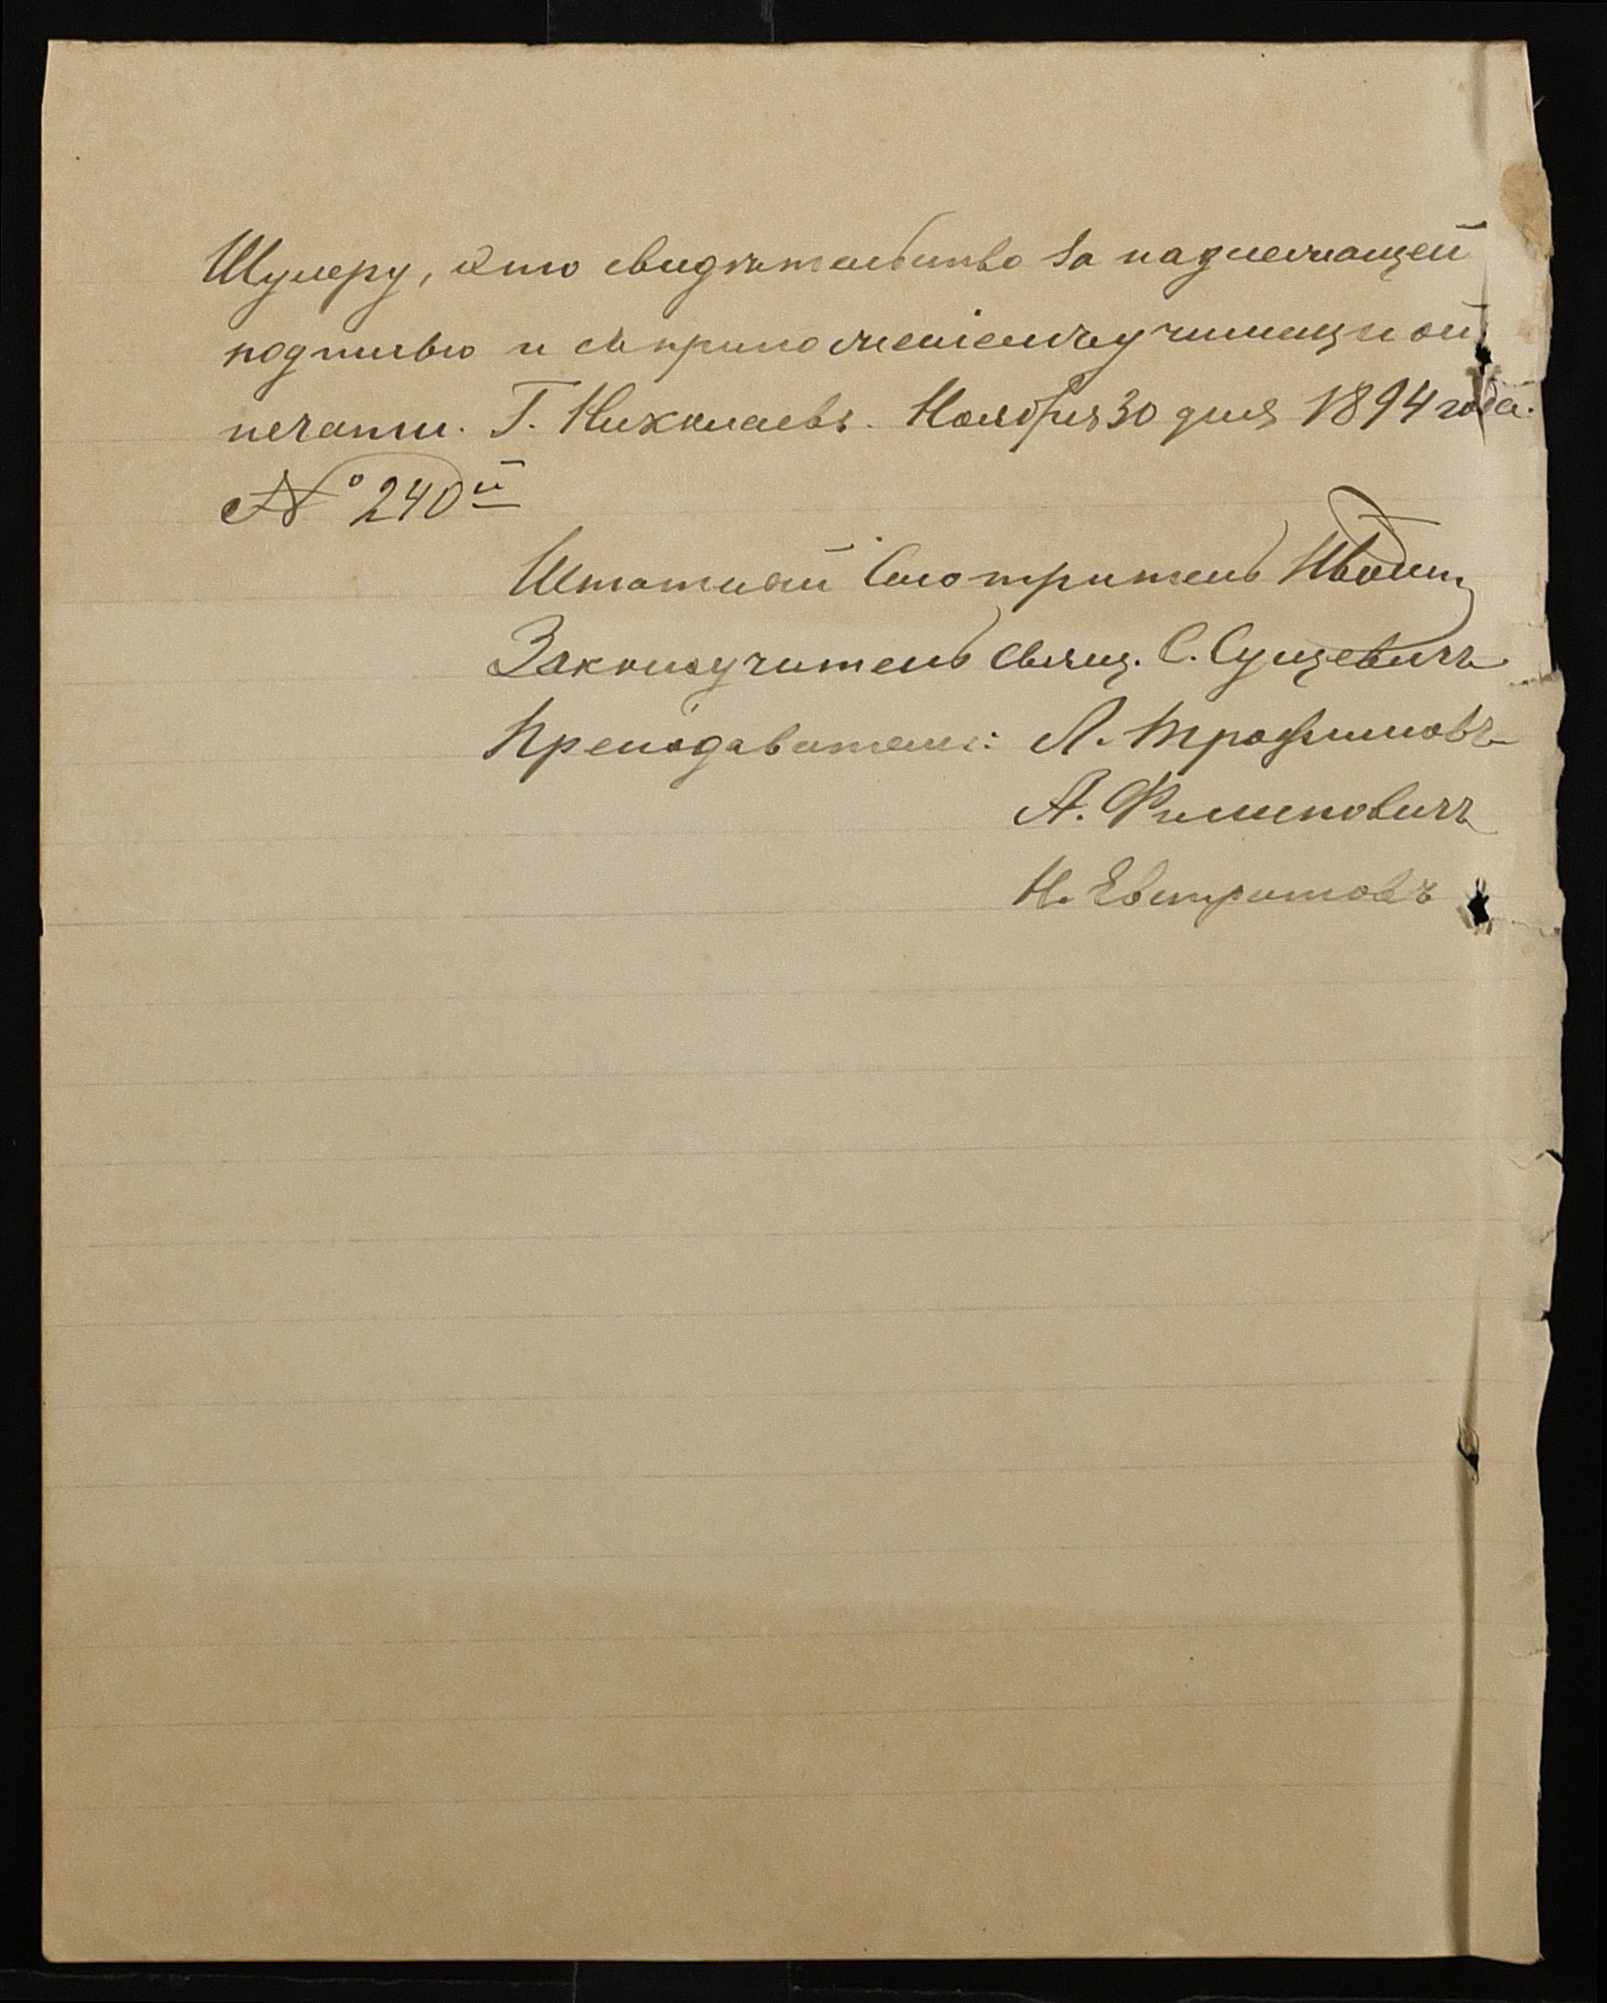 Шулеру, это свидѣтельство за надлежащей
подписью и съ приложеніемъ училищной
печати. Г. Николаевъ. Ноября 30 дня 1894 года.
№ 240й
Штатный Смотритель
Законоучитель свящ. С. Сущевичъ
Преподаватели: Л. Трофимовъ
А. Филиповичъ
Н. Евстратовъ